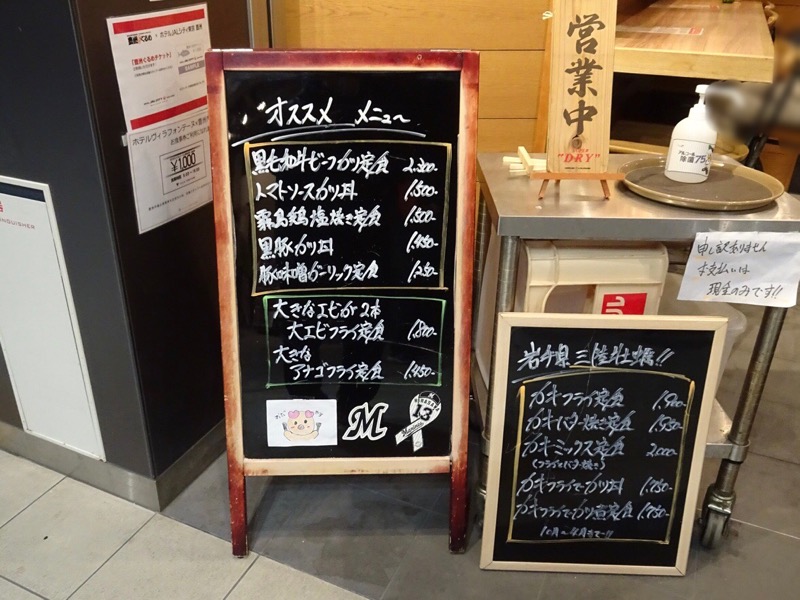 ホテルJALシティ東京 豊洲
ホテルヴィラフォンテーヌ
¥1000
オススメ メニュー
黒毛和牛ビーフカツ定食 2,300-
トマトソースカツ丼 1,500-
霧島鶏塩焼き定食 1,500-
黒豚カツ丼 1,450-
豚味噌ガーリック定食 1,250-
大きなエビが2本
大エビフライ定食 1,800-
大きな
アナゴフライ定食 1,450-
M
13
営業中の
"DRY"
アルコール
除菌75
申し訳ありません
お支払いは
現金のみです!!
岩手県三陸牡蠣!!
カキフライ定食 1,900-
カキバター焼き定食 1,950-
カキミックス定食 2,000-
(フライとバター焼き)
カキフライでカツ丼 1,750-
カキフライでカツ煮定食 1,750-
10月~4月まで!!